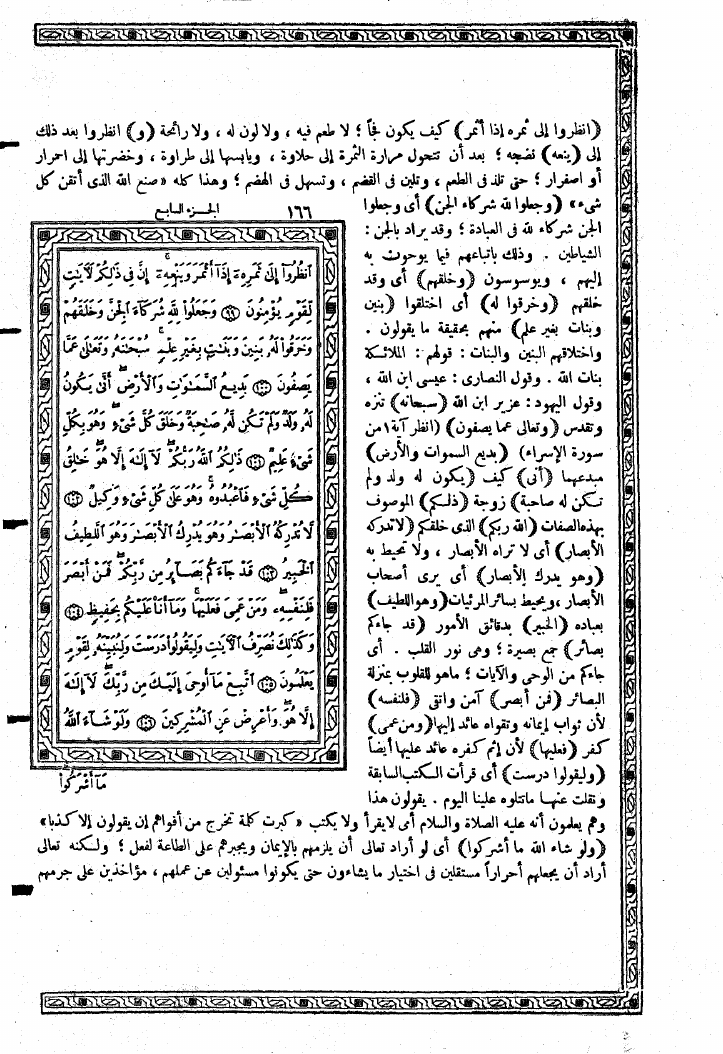 (انظروا إلى ثمره إذا أثمر) كيف يكون فجاً ؛ لا طعم فيه ، ولا لون له ، ولا رائحة (و) انظروا بعد ذلك
إلى (ينعه) نضجه ؛ بعد أن تتحول مرارة الثمرة إلى حلاوة ، ويابسها إلى طراوة ، وخضرتها إلى احمرار
أو اصفرار ؛ حتى تلذ فى الطعم ، وتلين فى القضم ، وتسهل فى الهضم ؛ وهذا كله «صنع الله الذى أتقن كل
شىء» (وجعلوا لله شركاء الجن) أى وجعلوا
الجن شركاء لله فى العبادة ؛ وقد يراد بالجن :
الشياطين . وذلك باتباعهم فيما يوحون به
إليهم ، ويوسوسون (وخلقهم) أى وقد
خلقهم (وخرقوا له) أى اختلقوا (بنين
وبنات بغير علم) منهم بحقيقة ما يقولون .
واختلاقهم البنين والبنات : قولهم : الملائكة
بنات الله . وقول النصارى : عيسى ابن الله ،
وقول اليهود : عزير ابن الله (سبحانه) تنزه
وتقدس (وتعالى عما يصفون) (انظر آية ١ من
سورة الإسراء) (بديع السموات والأرض)
مبدعهما (أنى) كيف (يكون له ولد ولم
تكن له صاحبة) زوجة (ذلكم) الموصوف
بهذه الصفات (الله ربكم) الذى خلقكم (لا تدركه
الأبصار) أى لا تراه الأبصار ، ولا تحيط به
(وهو يدرك الأبصار) أى يرى أصحاب
الأبصار ، ويحيط بسائر المرئيات (وهو اللطيف)
بعباده (الخبير) بدقائق الأمور (قد جاءكم
بصائر) جمع بصيرة ؛ وهى نور القلب . أى
جاءكم من الوحى والآيات ؛ ما هو للقلوب بمنزلة
البصائر (فمن أبصر) آمن واتقى (فلنفسه)
لأن ثواب إيمانه وتقواه عائد إليها (ومن عمى)
كفر (فعليها) لأن إثم كفره عائد عليها أيضاً
(وليقولوا درست) أى قرأت الكتب السابقة
ونقلت عنها ما تتلوه علينا اليوم . يقولون هذا
وهم يعلمون أنه عليه الصلاة والسلام أمى لا يقرأ ولا يكتب «كبرت كلمة تخرج من أفواههم إن يقولون إلا كذبا»
(ولو شاء الله ما أشركوا) أى لو أراد تعالى أن يلزمهم بالإيمان ويجبرهم على الطاعة لفعل ؛ ولكنه تعالى
أراد أن يجعلهم أحراراً مستقلين فى اختيار ما يشاءون حتى يكونوا مسئولين عن عملهم ، مؤاخذين على جرمهم
١٦٦ الجزء السابع
ٱنظُرُوٓا۟ إِلَىٰ ثَمَرِهِۦٓ إِذَآ أَثْمَرَ وَيَنْعِهِۦٓ إِنَّ فِى ذَٰلِكُمْ لَءَايَٰتٍ
لِّقَوْمٍ يُؤْمِنُونَ ﴿٩٩﴾ وَجَعَلُوا۟ لِلَّهِ شُرَكَآءَ ٱلْجِنَّ وَخَلَقَهُمْ
وَخَرَقُوا۟ لَهُۥ بَنِينَ وَبَنَٰتٍۭ بِغَيْرِ عِلْمٍ سُبْحَٰنَهُۥ وَتَعَٰلَىٰ عَمَّا
يَصِفُونَ ﴿١٠٠﴾ بَدِيعُ ٱلسَّمَٰوَٰتِ وَٱلْأَرْضِ أَنَّىٰ يَكُونُ
لَهُۥ وَلَدٌ وَلَمْ تَكُن لَّهُۥ صَٰحِبَةٌ وَخَلَقَ كُلَّ شَىْءٍ وَهُوَ بِكُلِّ
شَىْءٍ عَلِيمٌ ﴿١٠١﴾ ذَٰلِكُمُ ٱللَّهُ رَبُّكُمْ لَآ إِلَٰهَ إِلَّا هُوَ خَٰلِقُ
كُلِّ شَىْءٍ فَٱعْبُدُوهُ وَهُوَ عَلَىٰ كُلِّ شَىْءٍ وَكِيلٌ ﴿١٠٢﴾
لَّا تُدْرِكُهُ ٱلْأَبْصَٰرُ وَهُوَ يُدْرِكُ ٱلْأَبْصَٰرَ وَهُوَ ٱللَّطِيفُ
ٱلْخَبِيرُ ﴿١٠٣﴾ قَدْ جَآءَكُم بَصَآئِرُ مِن رَّبِّكُمْ فَمَنْ أَبْصَرَ
فَلِنَفْسِهِۦ وَمَنْ عَمِىَ فَعَلَيْهَا وَمَآ أَنَا۠ عَلَيْكُم بِحَفِيظٍ ﴿١٠٤﴾
وَكَذَٰلِكَ نُصَرِّفُ ٱلْءَايَٰتِ وَلِيَقُولُوا۟ دَرَسْتَ وَلِنُبَيِّنَهُۥ لِقَوْمٍ
يَعْلَمُونَ ﴿١٠٥﴾ ٱتَّبِعْ مَآ أُوحِىَ إِلَيْكَ مِن رَّبِّكَ لَآ إِلَٰهَ
إِلَّا هُوَ وَأَعْرِضْ عَنِ ٱلْمُشْرِكِينَ ﴿١٠٦﴾ وَلَوْ شَآءَ ٱللَّهُ
مَآ أَشْرَكُوا۟